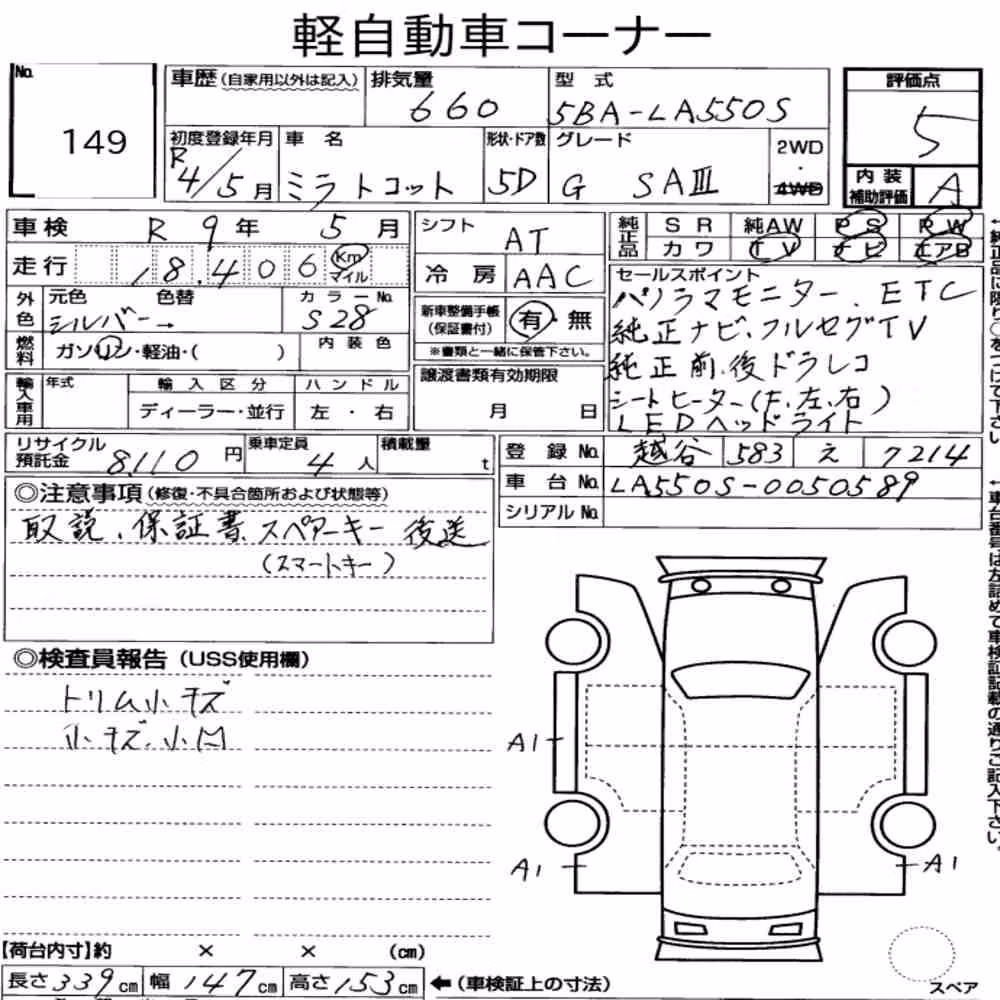 軽自動車コーナー
No. 149
車歴(自家用以外は記入) 排気量 660 型式 5BA-LA550S 評価点 5
初度登録年月 R4/5月 車名 ミラトコット 形状・ドア数 5D グレード G SAⅢ 2WD・4WD 内装補助評価 A
車検 R9年5月 シフト AT 純正品 SR 純AW PS PW
走行 18,406 Km マイル 冷房 AAC カワ TV ナビ エアB
外色 元色 シルバー→ 色替 カラーNo. S28 新車整備手帳(保証書付) 有・無
※書類と一緒に保管下さい。
燃料 ガソリン・軽油・( ) 内装色
セールスポイント
パノラマモニター、ETC
純正ナビ、フルセグTV
純正前、後ドラレコ
シートヒーター(F、左、右)
LEDヘッドライト
輸入車用 年式 輸入区分 ハンドル 譲渡書類有効期限
ディーラー・並行 左・右 月 日
リサイクル預託金 8110円 乗車定員 4人 積載量 t 登録No. 越谷 583 え 7214
車台No. LA550S-0050589
シリアルNo.
◎注意事項(修復・不具合箇所および状態等)
取説、保証書、スペアーキー 後送
(スマートキー)
◎検査員報告(USS使用欄)
トリム小キズ
小キズ、小凹
A1
A1 A1
【荷台内寸】約 × × (cm)
長さ339cm 幅147cm 高さ153cm ←(車検証上の寸法)
スペア
←純正品に限り○をつけて下さい
←車台番号は左詰めで車検証記載の通りご記入下さい。